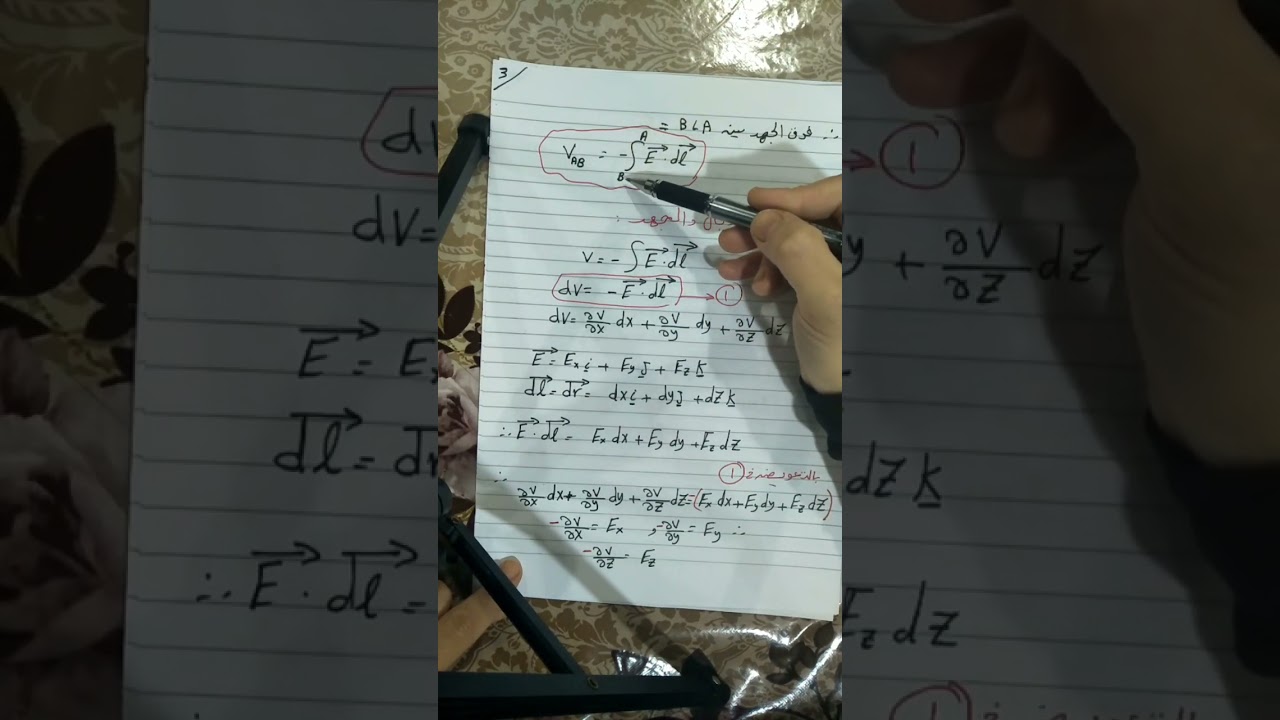 3/
∴ فرق الجهد بين A و B =
V_AB = - ∫_B^A E⃗ · dl⃗
والجهد :
V = - ∫ E⃗ · dl⃗
dV = - E⃗ · dl⃗ → ①
dV = ∂V/∂x dx + ∂V/∂y dy + ∂V/∂z dz
E⃗ = Ex i + Ey j + Ez k
dl⃗ = dr⃗ = dx i + dy j + dz k
∴ E⃗ · dl⃗ = Ex dx + Ey dy + Ez dz
بالتعويض في ①
∴ ∂V/∂x dx + ∂V/∂y dy + ∂V/∂z dz = (Ex dx + Ey dy + Ez dz)
-∂V/∂x = Ex , -∂V/∂y = Ey ∴
-∂V/∂z = Ez